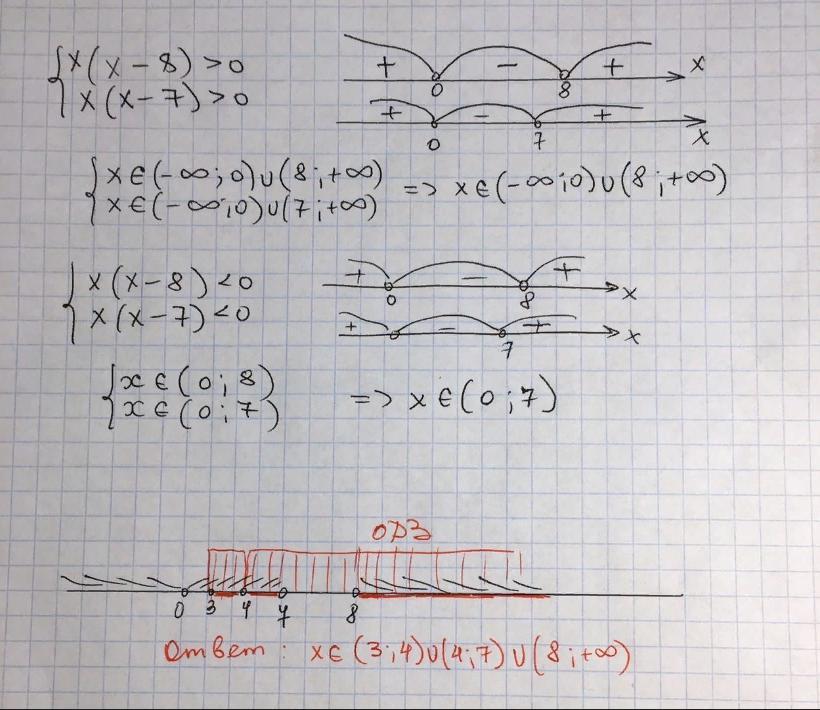 { x(x-8)>0
{ x(x-7)>0
+ - + x
0 8
+ - + x
0 7
{ x∈(-∞;0)∪(8;+∞)
{ x∈(-∞;0)∪(7;+∞) => x∈(-∞;0)∪(8;+∞)
{ x(x-8)<0
{ x(x-7)<0
+ - + x
0 8
+ - + x
7
{ x∈(0;8)
{ x∈(0;7) => x∈(0;7)
ОДЗ
0 3 4 7 8
Ответ: x∈(3;4)∪(4;7)∪(8;+∞)